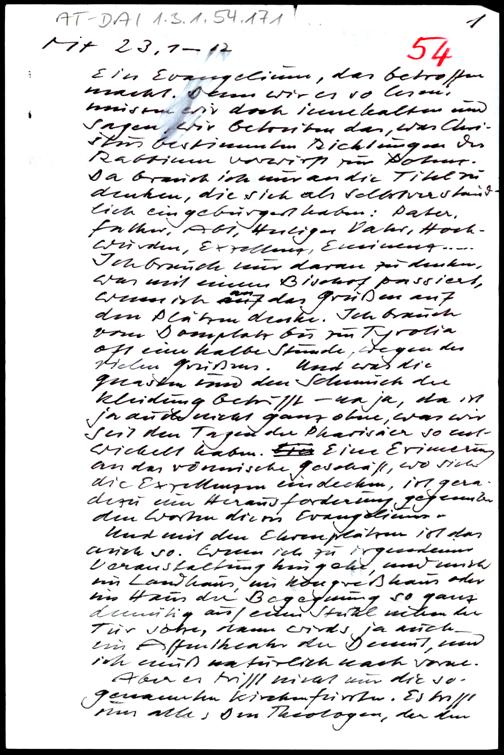 AT-DAI 1.3.1.54.171
1
Mt 23,1-12
54
Ein Evangelium, das betroffen
macht. Denn wir es so lesen
müssen wir doch innehalten und
sagen, wir betreiben das, was Chri-
stus bestimmten Richtungen des
Rabbinen vorwirft zur
Da brauch ich nur an die Titel zu
denken, die sich als selbstverständ-
lich eingebürgert haben: Pater,
Father, Abt, Heiliger Vater, Hoch-
würden, Exzellenz, Eminenz.....
Ich brauch nur daran zu denken,
was mit einem Bischof passiert,
wenn ich an das Grüßen auf
den Plätzen denke. Ich brauch
vom Domplatz bis zur Tyrolia
oft eine halbe Stunde, wegen des
vielen Grüßens. Und was die
Quasten und den Schmuck der
Kleidung betrifft - na ja, da ist
ja auch nicht ganz ohne, was wir
seit den Tagen der Pharisäer so ent-
wickelt haben. Eine Erinnerung
an das römische Geschäft, wo sich
die Exzellenzen eindecken, ist gera-
dezu eine Herausforderung gegenüber
den Worten dieses Evangeliums.
Und mit den Ehrenplätzen ist das
auch so. Wenn ich zu irgendeiner
Veranstaltung hingehe, und mich
im Landhaus, im Kongreßhaus oder
im Haus der Begegnung so ganz
demütig auf einen Stuhl neben der
Tür setze, dann wirds ja auch
ein Affentheater der Demut, und
ich muß natürlich nach vorne.
Aber es trifft nicht nur die so-
genannten Kirchenfürsten. Es trifft
uns alle: Den Theologen, der den